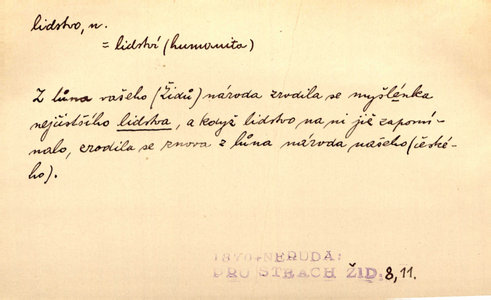 lidstvo, n.
= lidství (humanita)
Z lůna vašeho (Židů) národa zrodila se myšlénka
nejčistšího lidstva, a když lidstvo na ni již zapomí-
nalo, zrodila se znova z lůna národa našeho (české-
ho).
1870 NERUDA:
PRO STRACH ŽID. 8, 11.